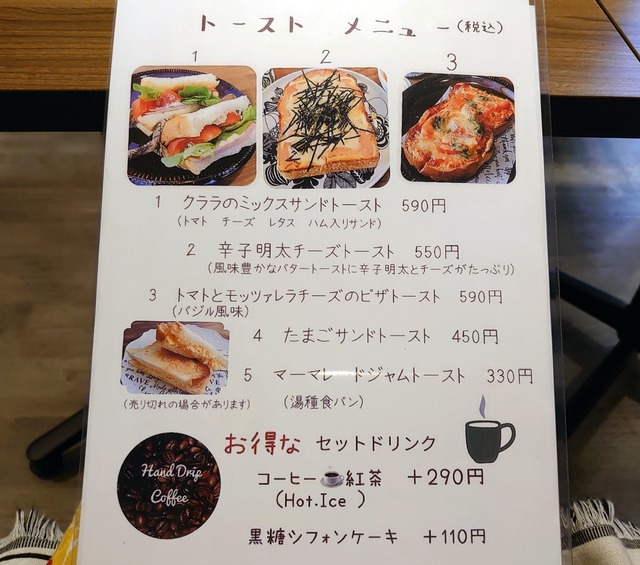 トースト メニュー(税込)
1 2 3
1 クララのミックスサンドトースト 590円
(トマト チーズ レタス ハム入りサンド)
2 辛子明太チーズトースト 550円
(風味豊かなバタートーストに辛子明太とチーズがたっぷり)
3 トマトとモッツァレラチーズのピザトースト 590円
(バジル風味)
4 たまごサンドトースト 450円
5 マーマレードジャムトースト 330円
(売り切れの場合があります) (湯種食パン)
お得な セットドリンク
コーヒー 紅茶 +290円
(Hot.Ice )
Hand Drip
Coffee
黒糖シフォンケーキ +110円